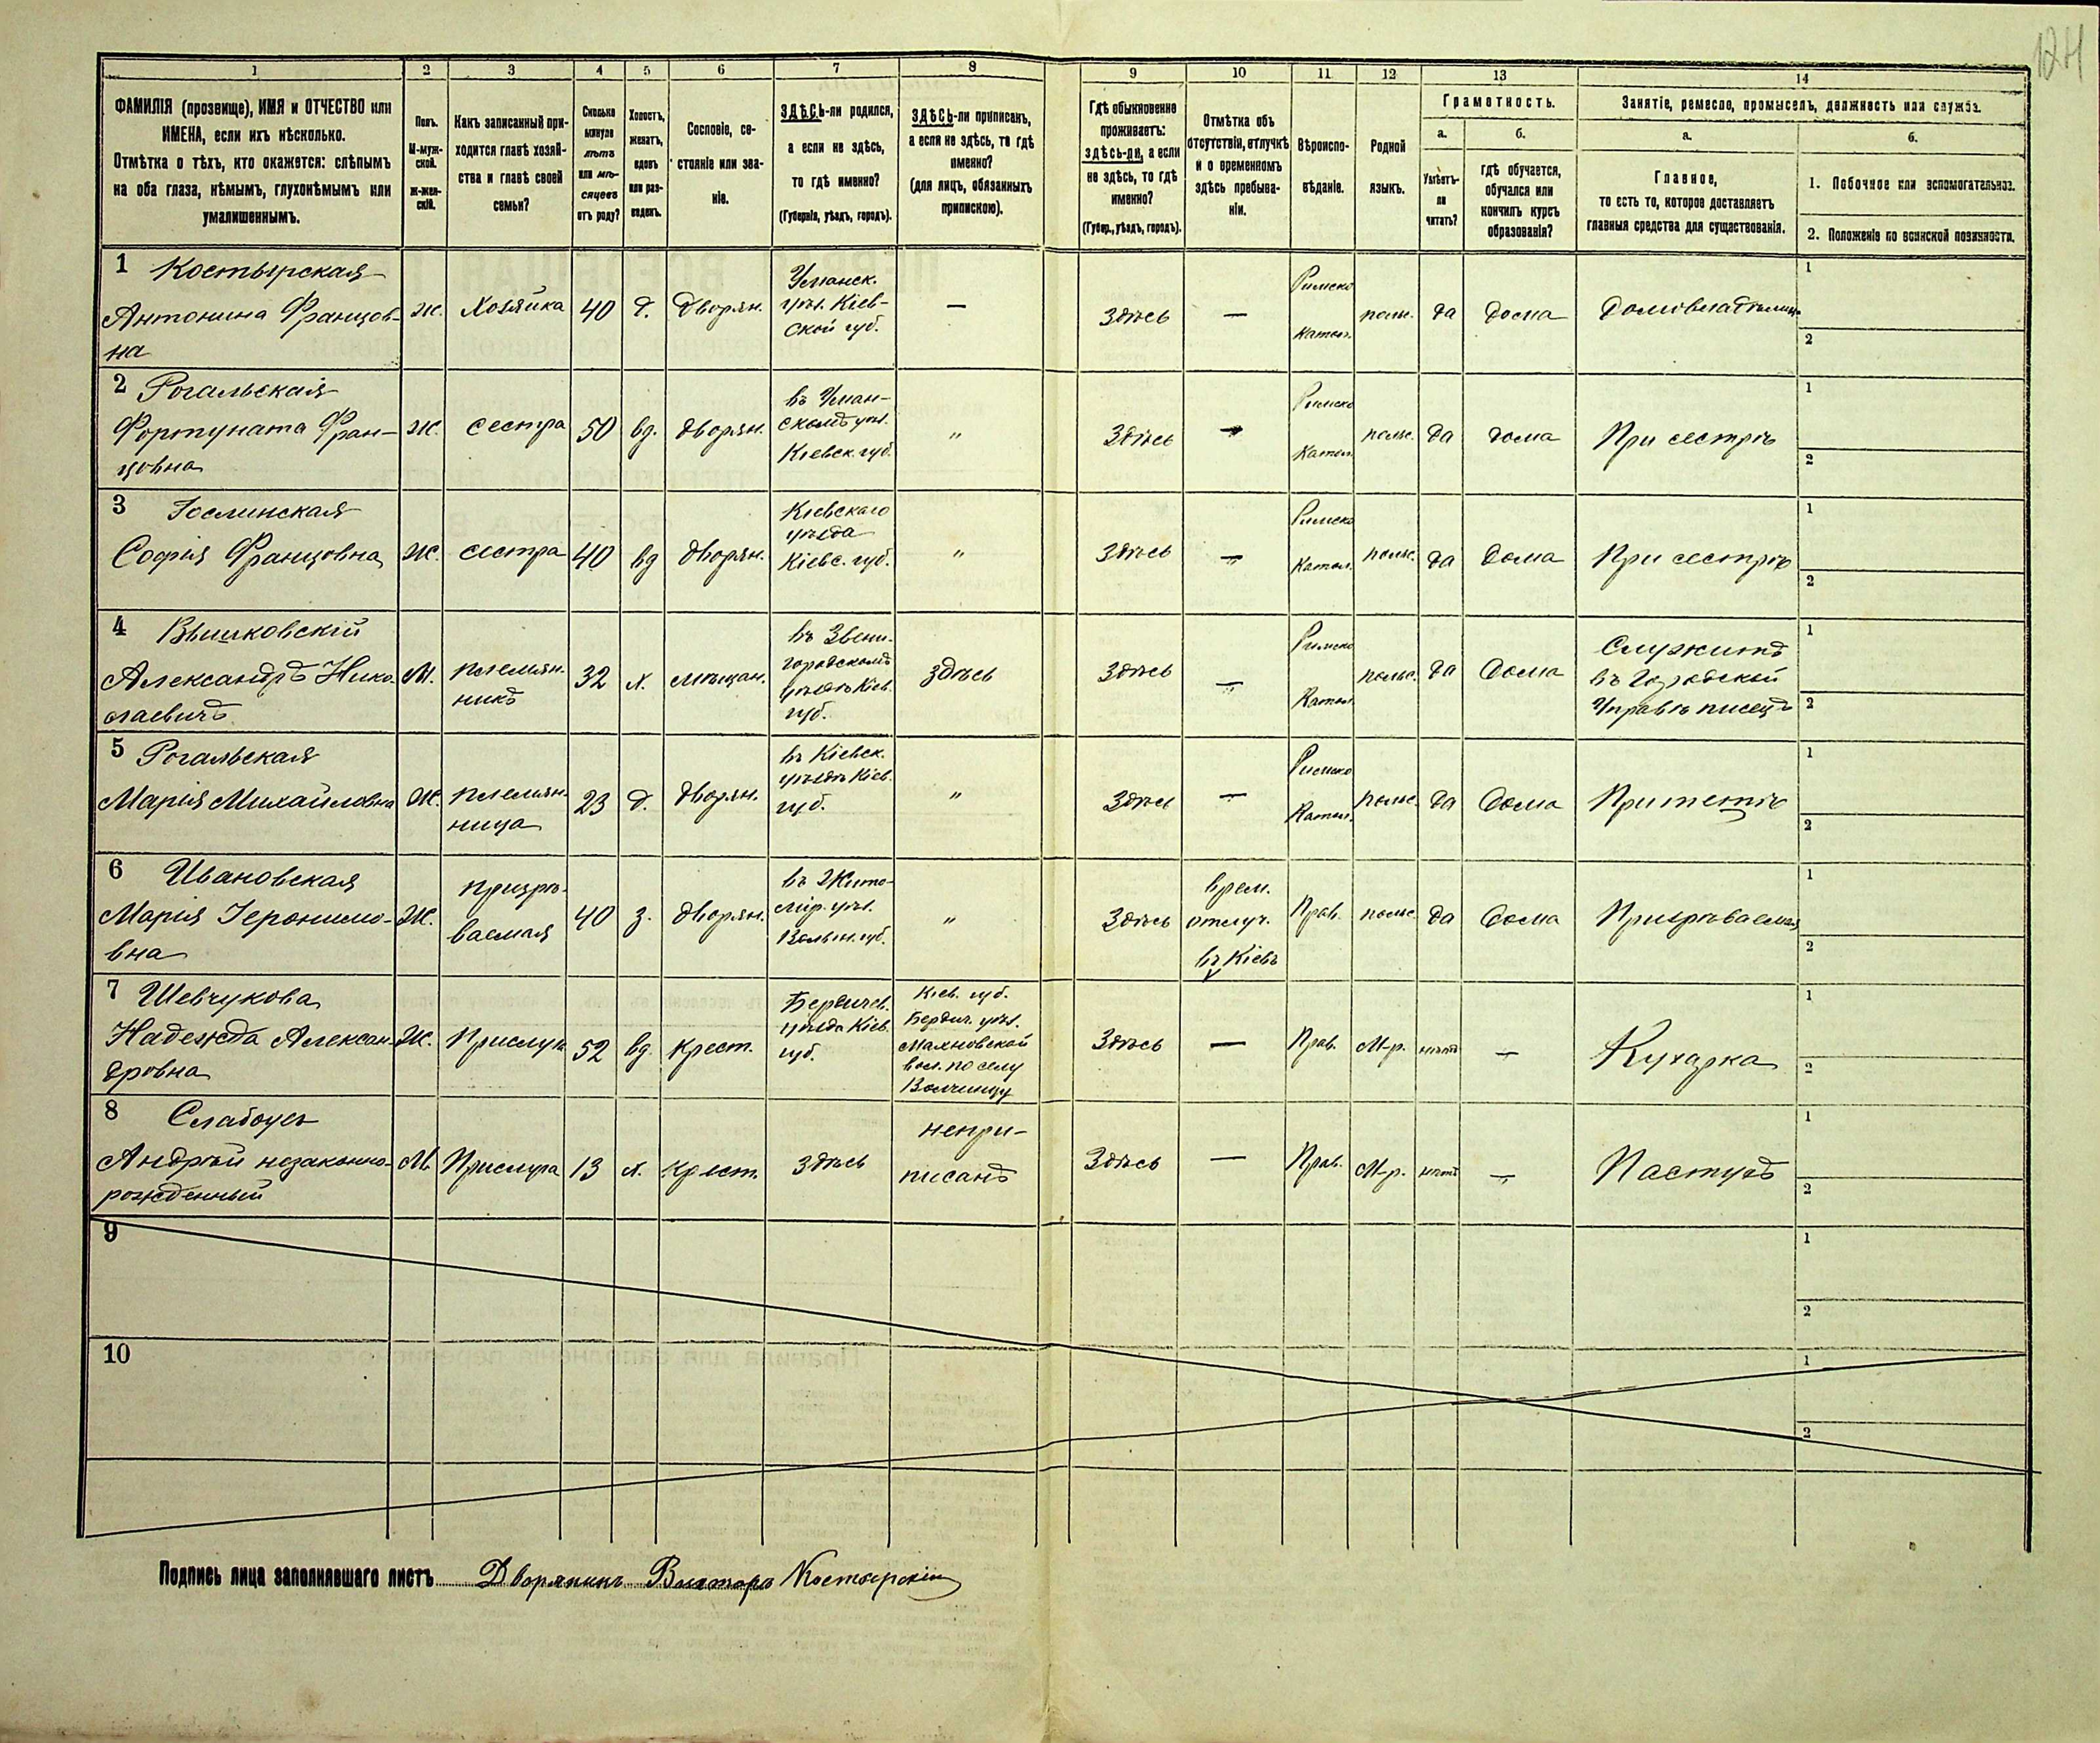 124
1 2 3 4 5 6 7 8 9 10 11 12 13 14
ФАМИЛІЯ (прозвище), ИМЯ и ОТЧЕСТВО или
ИМЕНА, если ихъ нѣсколько.
Отмѣтка о тѣхъ, кто окажется: слѣпымъ
на оба глаза, нѣмымъ, глухонѣмымъ или
умалишеннымъ.
Полъ.
М-муж-
ской.
Ж-жен-
скій.
Какъ записанный при-
ходится главѣ хозяй-
ства и главѣ своей
семьи?
Сколько
минуло
лѣтъ
или мѣ-
сяцевъ
отъ роду?
Холостъ,
женатъ,
вдовъ
или раз-
веденъ.
Сословіе, со-
стояніе или зва-
ніе.
ЗДѢСЬ-ли родился,
а если не здѣсь,
то гдѣ именно?
(Губернія, уѣздъ, городъ).
ЗДѢСЬ-ли приписанъ,
а если не здѣсь, то гдѣ
именно?
(для лицъ, обязанныхъ
припискою).
Гдѣ обыкновенно
проживаетъ:
здѣсь-ли, а если
не здѣсь, то гдѣ
именно?
(Губер., уѣздъ, городъ).
Отмѣтка объ
отсутствіи, отлучкѣ
и о временномъ
здѣсь пребыва-
ніи.
Вѣроиспо-
вѣданіе.
Родной
языкъ.
Грамотность.
а.
Умѣетъ-
ли
читать?
б.
гдѣ обучается,
обучался или
кончилъ курсъ
образованія?
Занятіе, ремесло, промыселъ, должность или служба.
а.
Главное,
то есть то, которое доставляетъ
главныя средства для существованія.
б.
1. Побочное или вспомогательное.
2. Положеніе по воинской повинности.
1 Костырская
Антонина Францов-
на
ж.
Хозяйка
40
д.
Дворян.
Уманск.
уѣз. Кіев-
ской губ.
—
Здѣсь
—
Римско
Катол.
польс.
да
дома
Домовладѣлица
1
2
2 Рогальская
Фортуната Фран-
цовна
ж.
сестра
50
вд.
дворян.
въ Уман-
скомъ уѣз.
Кіевск. губ.
"
Здѣсь
—
Римско
Катол.
польс.
да
дома
При сестрѣ
1
2
3 Гослинская
Софія Францовна
ж.
сестра
40
вд
дворян.
Кіевскаго
уѣзда
Кіевс. губ.
"
Здѣсь
—
Римско
Катол.
польс.
да
дома
При сестрѣ
1
2
4 Вышковскій
Александръ Нико-
лаевичъ
М.
племян-
никъ
32
х.
мѣщан.
въ Звени-
городскомъ
уѣздѣ Кіев.
губ.
здѣсь
Здѣсь
—
Римско
Катол.
польс.
да
дома
Служитъ
въ Городской
Управѣ писецъ
1
2
5 Рогальская
Марія Михайловна
Ж.
племян-
ница
23
д.
дворян.
въ Кіевск.
уѣздѣ Кіев.
губ.
"
Здѣсь
—
Римско
Катол.
польс.
да
дома
При теткѣ
1
2
6 Ивановская
Марія Іеронимо-
вна
Ж.
призрѣ-
ваемая
40
з.
дворян.
въ Жито-
мір. уѣз.
Волын. губ.
"
Здѣсь
врем.
отлуч.
въ Кіевъ
Прав.
польс.
да
дома
Призрѣваемая
1
2
7 Шевчукова
Надежда Алексан-
дровна
Ж.
Прислуга
52
вд.
крест.
Бердичев.
уѣзда Кіев.
губ.
Кіев. губ.
Бердич. уѣз.
Махновской
вол. по селу
Волчинцу
Здѣсь
—
Прав.
М-р.
нѣтъ
—
Кухарка
1
2
8 Слабоусъ
Андрей незаконно-
рожденный
М.
Прислуга
13
х.
крест.
здѣсь
непри-
писанъ
Здѣсь
—
Прав.
М-р.
нѣтъ
—
Пастухъ
1
2
9
1
2
10
1
2
Подпись лица заполнявшаго листъ Дворянинъ Викторъ Костырскій